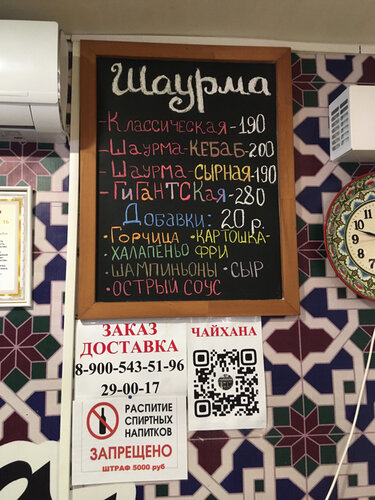 Шаурма
-Классическая-190
-Шаурма-КЕБАБ-200
-Шаурма-СЫРНАЯ-190
-ГиГАНТСКая-280
Добавки: 20 р.
•Горчица •КАРТОШКА-
•ХАЛАПЕНЬО ФРИ
•ШАМПИНЬОНЫ •СЫР
•ОСТРЫЙ СОУС
ЗАКАЗ
ДОСТАВКА
8-900-543-51-96
29-00-17
ЧАЙХАНА
РАСПИТИЕ
СПИРТНЫХ
НАПИТКОВ
ЗАПРЕЩЕНО
ШТРАФ 5000 руб